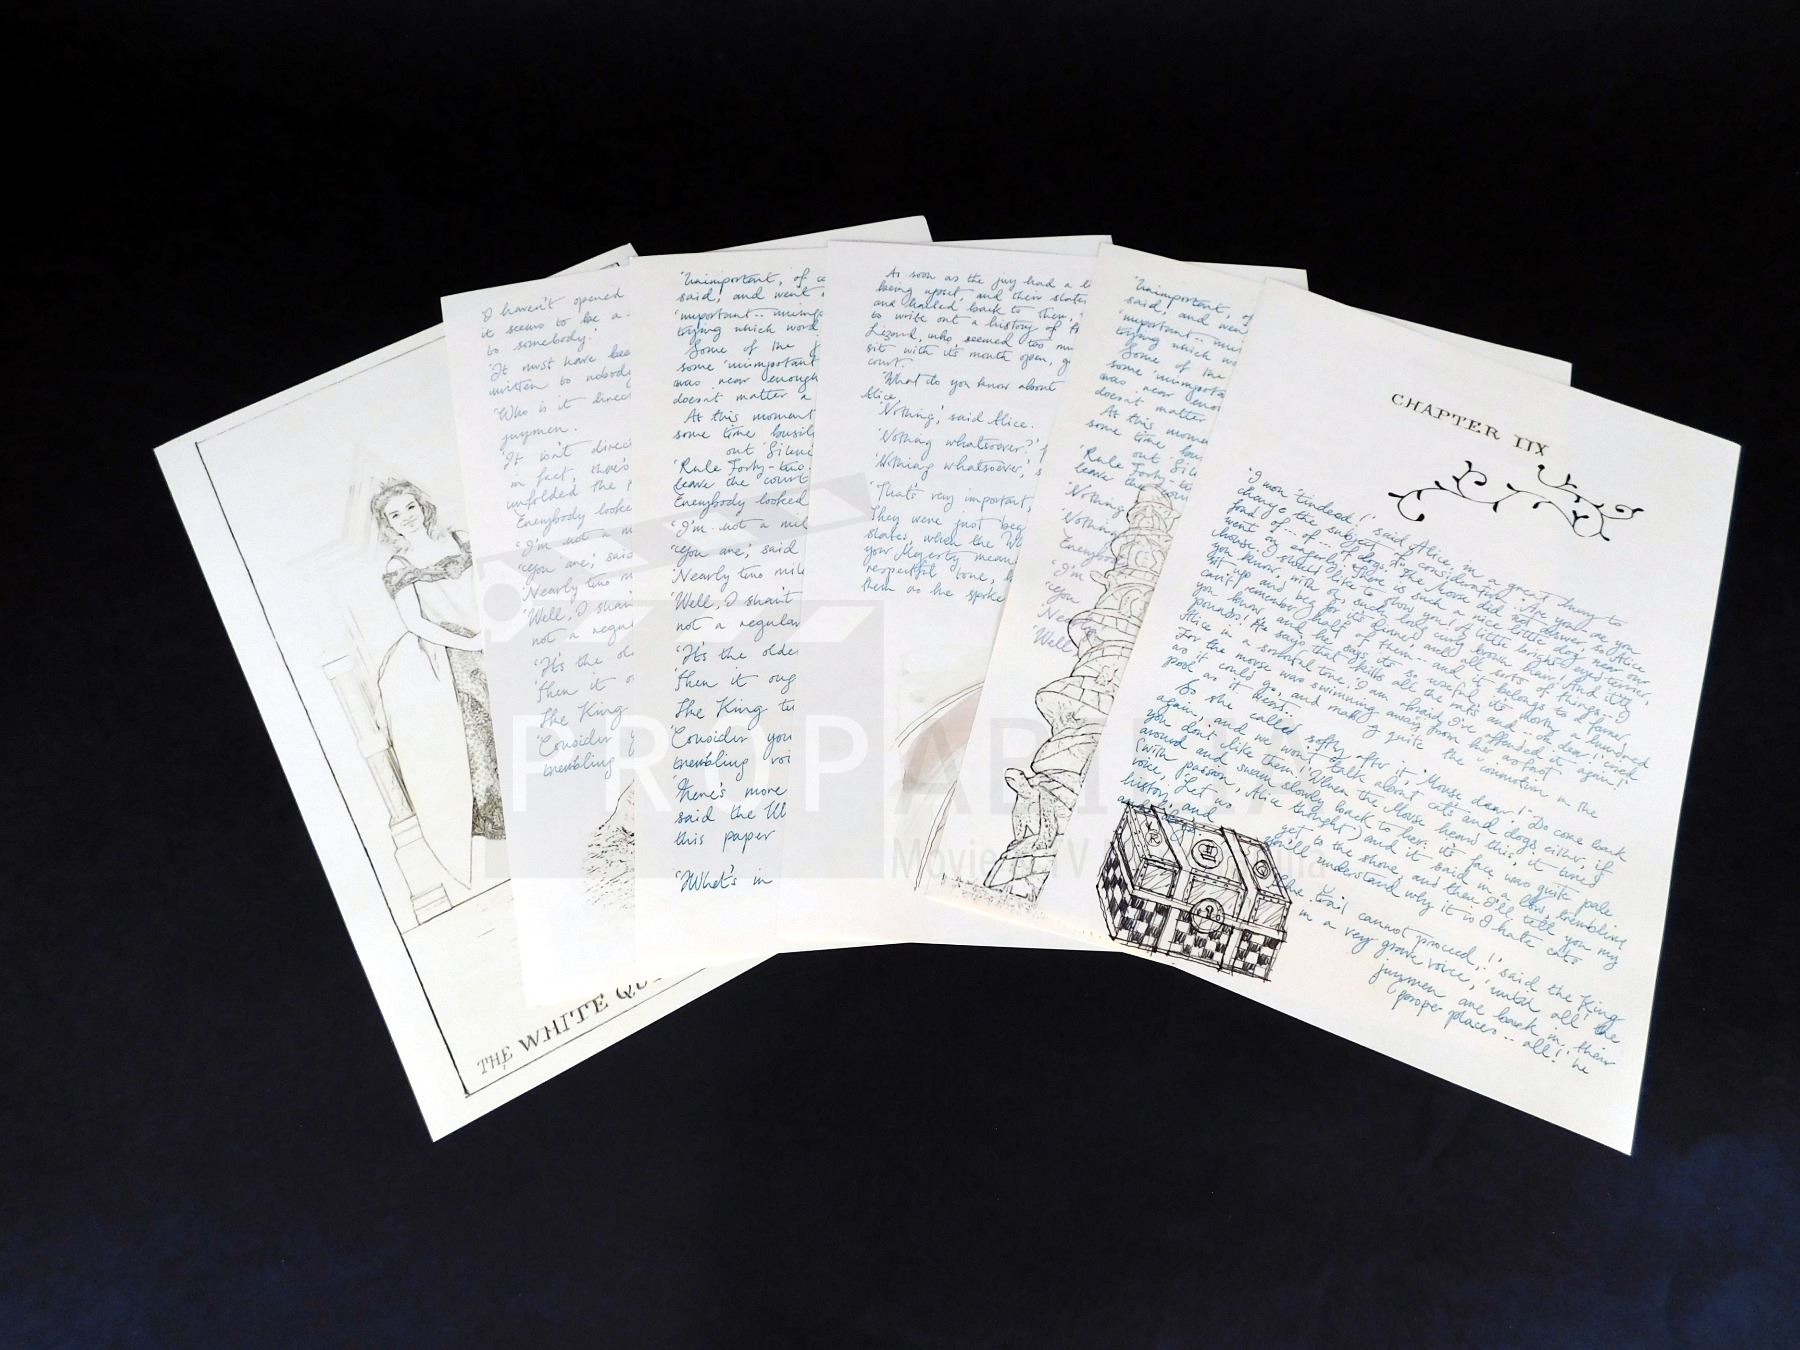 THE WHITE QU
I haven't opened
it seems to be a
to somebody.'
'It must have bee
written to nobody
'Who is it direc
jurymen.
'It isn't direc
in fact, there's
unfolded the p
Everybody looke
'I'm not a m
'you are,' said
'Nearly two m
'Well, I shan'
not a regul
'It's the ol
'Then it o
The King
'Consider y
trembling
'Unimportant, of c
said, and went
'important -- unimp
trying which word
Some of the j
some 'unimportant
was near enough
doesnt matter a
At this moment
some time busily
out 'Silenc
'Rule Forty-two.
leave the court
Everybody looked
'I'm not a mil
'you are,' said
'Nearly two mile
'Well, I shan't
not a regular
'It's the olde
'Then it oug
The King tu
'Consider you
trembling voi
'There's more
said the W
this paper
'What's in
As soon as the jury had a
being upset, and their slates
and handed back to them,
to write out a history of th
Lizard, who seemed too mu
sit with its mouth open, g
court.
'What do you know about
Alice.
'Nothing,' said Alice.
'Nothing whatsoever?'
'Nothing whatsoever,' s
'That's very important,
They were just beg
slates, when the W
your Majesty mean
respectful tone, b
them as he spoke
'Unimportant, of
said, and wen
'important -- uni
trying which w
Some of the
some 'unimporta
was near eno
doesnt matter
At this mome
some time bus
out 'Sile
'Rule Forty-tw
leave the cou
'Nothing
'Nothing
Everybod
'I'm
'you
Nearly
'Well,
CHAPTER IIX
'I won 'tindeed!' said Alice, in a great hurry to
change the subject of conversation. 'Are you -- are you
fond of -- of -- of dogs?' The Mouse did not answer, so Alice
went on eagerly: 'There is such a nice little dog near our
house I should like to show you! A little bright-eyed terrier,
you know, with oh, such long curly brown hair! And it'll
sit up and beg for its dinner, and all sorts of things -- I
can't remember half of them -- and it belongs to a farmer,
you know, and he says it's so useful, its worth a hundred
pounds! He says it kills all the rats and -- oh dear!' cried
Alice in a sorrowful tone, 'I am 'fraid I've offended it again!'
For the mouse was swimming away from her as fast
as it could go, and making quite the commotion in the
pool as it went.
So she called softly after it 'Mouse dear! Do come back
again, and we won't talk about cats and dogs either, if
you dont like them!' When the Mouse heard this, it turned
around and swam slowly back to her: its face was quite pale
(with passion, Alice thought) and it said in a low, trembling
voice, 'Let us get to the shore, and then I'll tell you my
history, and you'll understand why it is I hate cats
and dogs.
'The trail cannot proceed,' said the King
in a very grave voice, 'until all the
jurymen are back in their
proper places -- all!' he
PROPABILIA
Movie & TV